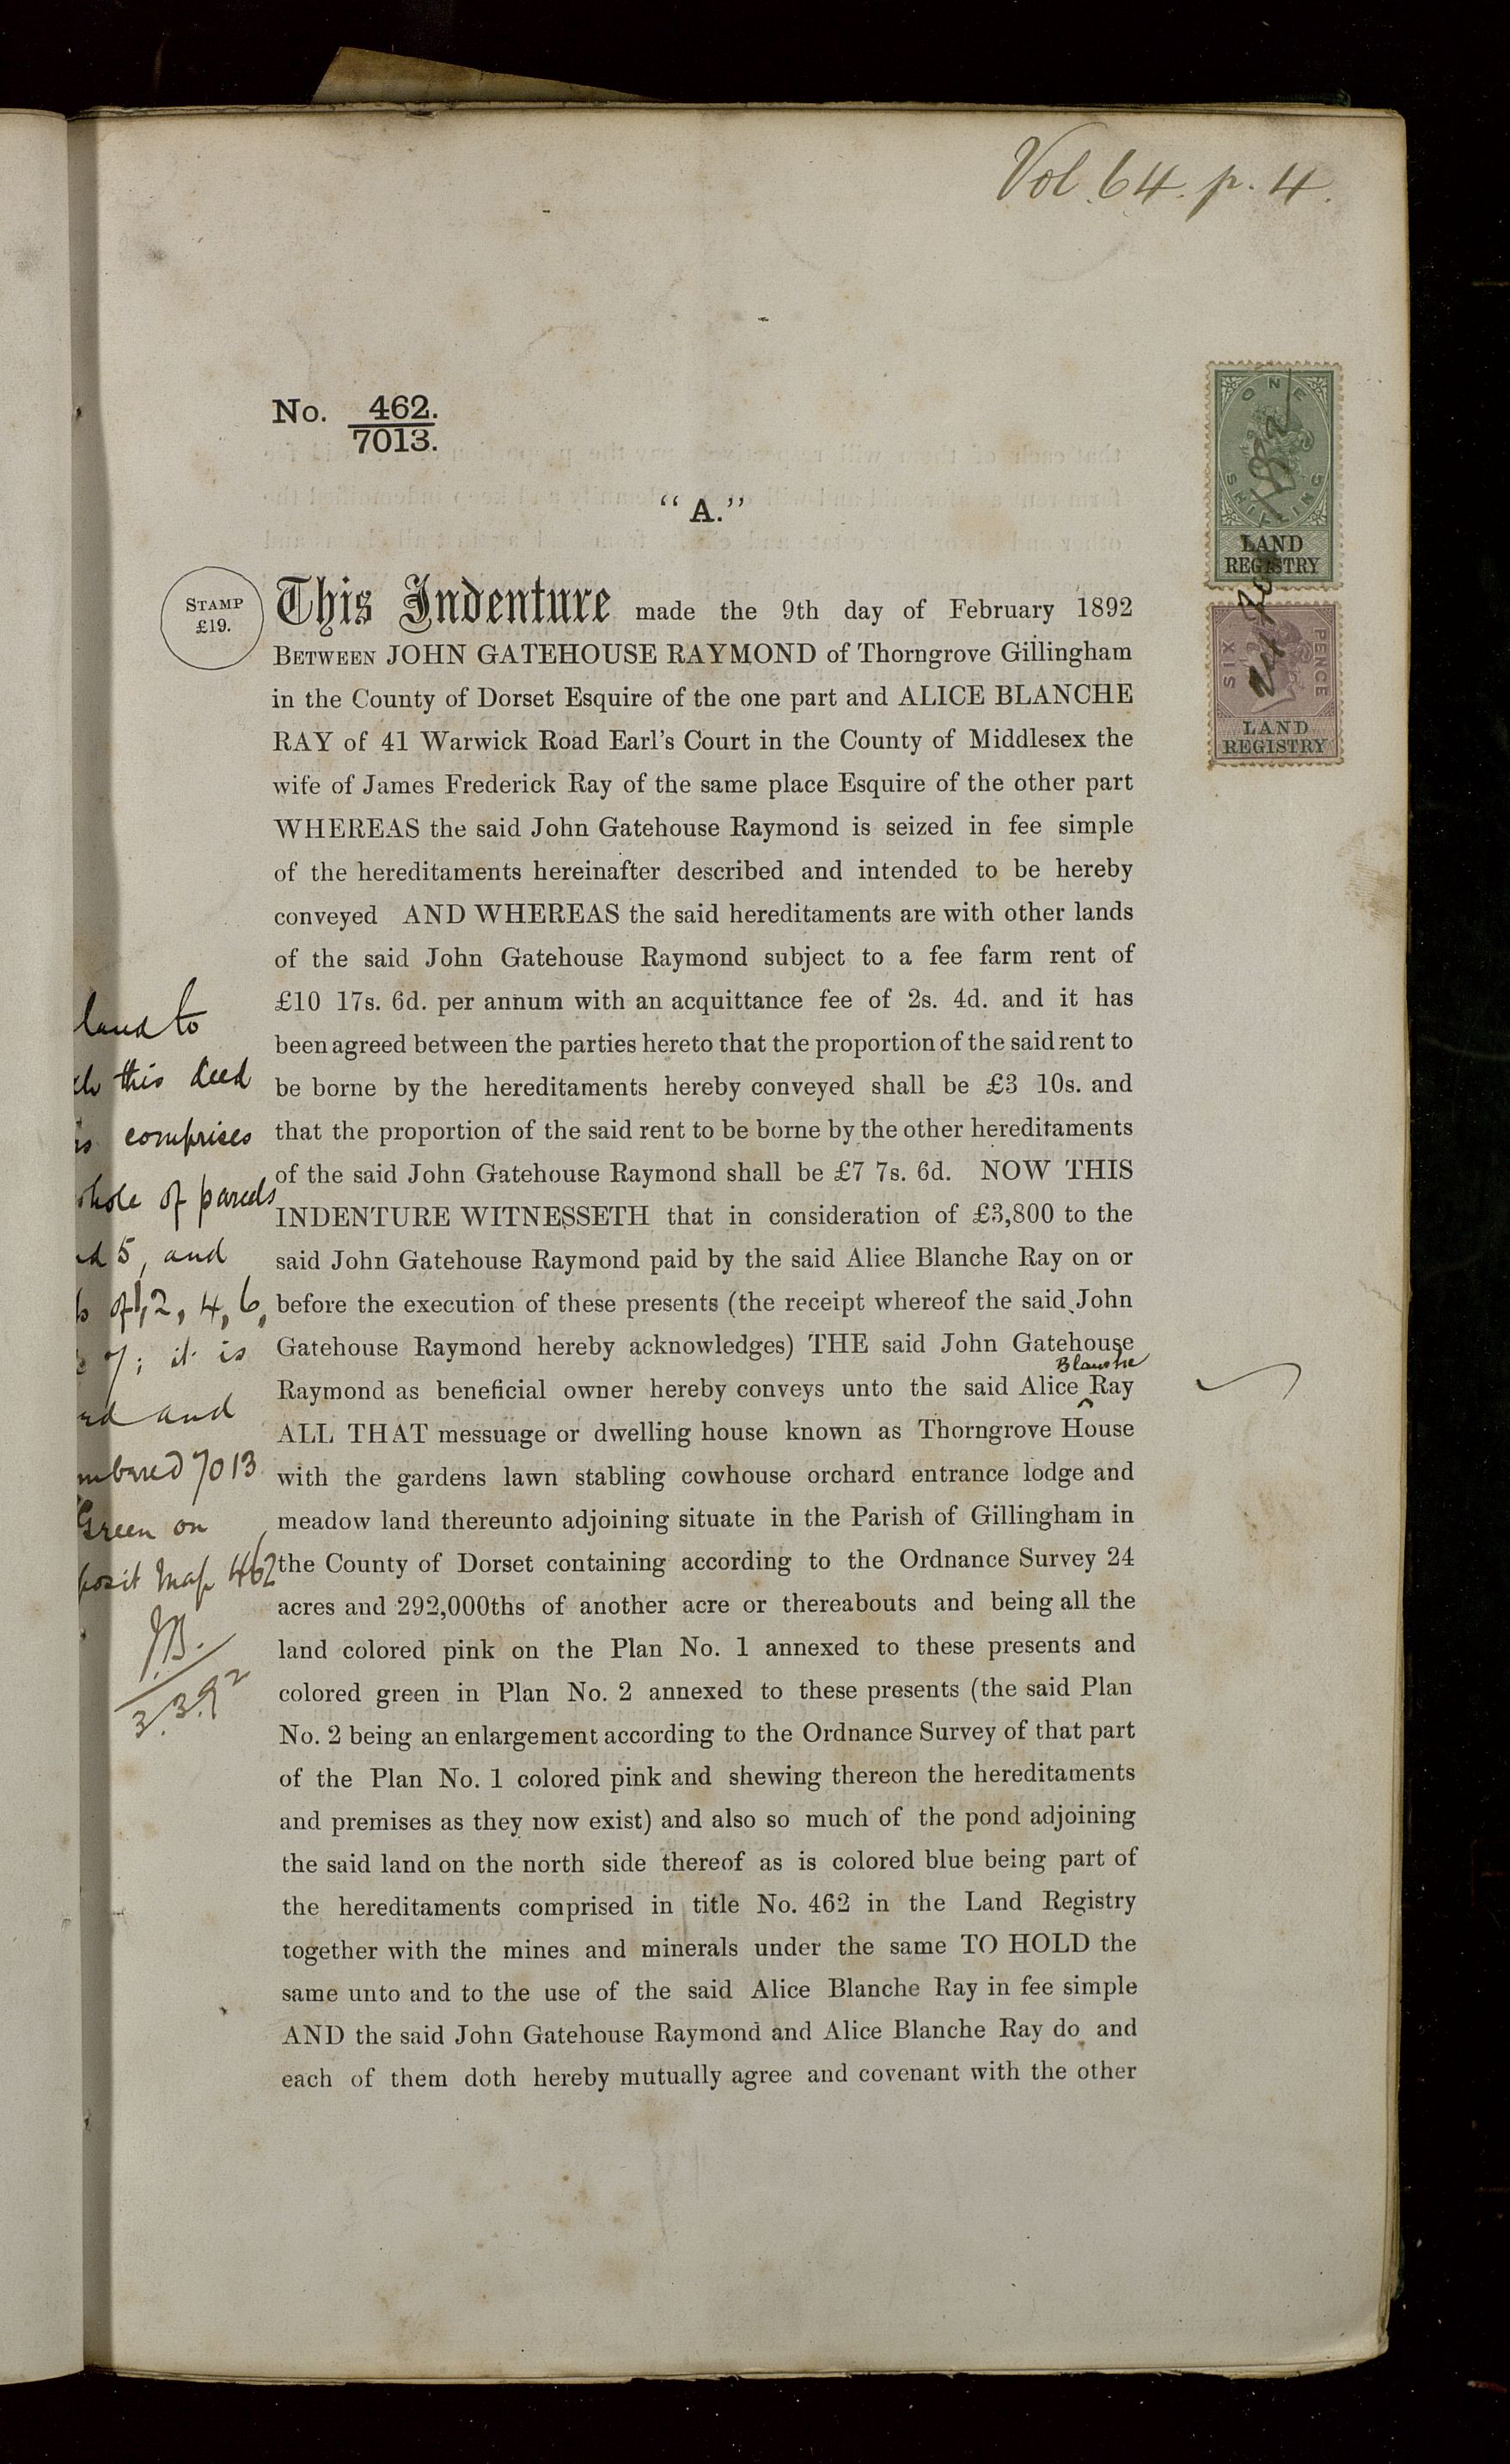 Vol. 64. p. 4.
No. 462.
7013.
"A."
STAMP
£19.
This Indenture made the 9th day of February 1892
BETWEEN JOHN GATEHOUSE RAYMOND of Thorngrove Gillingham
in the County of Dorset Esquire of the one part and ALICE BLANCHE
RAY of 41 Warwick Road Earl's Court in the County of Middlesex the
wife of James Frederick Ray of the same place Esquire of the other part
WHEREAS the said John Gatehouse Raymond is seized in fee simple
of the hereditaments hereinafter described and intended to be hereby
conveyed AND WHEREAS the said hereditaments are with other lands
of the said John Gatehouse Raymond subject to a fee farm rent of
£10 17s. 6d. per annum with an acquittance fee of 2s. 4d. and it has
been agreed between the parties hereto that the proportion of the said rent to
be borne by the hereditaments hereby conveyed shall be £3 10s. and
that the proportion of the said rent to be borne by the other hereditaments
of the said John Gatehouse Raymond shall be £7 7s. 6d. NOW THIS
INDENTURE WITNESSETH that in consideration of £3,800 to the
said John Gatehouse Raymond paid by the said Alice Blanche Ray on or
before the execution of these presents (the receipt whereof the said John
Gatehouse Raymond hereby acknowledges) THE said John Gatehouse
Blanche
Raymond as beneficial owner hereby conveys unto the said Alice ^ Ray
ALL THAT messuage or dwelling house known as Thorngrove House
with the gardens lawn stabling cowhouse orchard entrance lodge and
meadow land thereunto adjoining situate in the Parish of Gillingham in
the County of Dorset containing according to the Ordnance Survey 24
acres and 292,000ths of another acre or thereabouts and being all the
land colored pink on the Plan No. 1 annexed to these presents and
colored green in Plan No. 2 annexed to these presents (the said Plan
No. 2 being an enlargement according to the Ordnance Survey of that part
of the Plan No. 1 colored pink and shewing thereon the hereditaments
and premises as they now exist) and also so much of the pond adjoining
the said land on the north side thereof as is colored blue being part of
the hereditaments comprised in title No. 462 in the Land Registry
together with the mines and minerals under the same TO HOLD the
same unto and to the use of the said Alice Blanche Ray in fee simple
AND the said John Gatehouse Raymond and Alice Blanche Ray do and
each of them doth hereby mutually agree and covenant with the other
land to
this deed
comprises
of parcels
5, and
of 1, 2, 4, 6,
7; it is
and
7013
Green on
Map 462
J.B.
3.3.92
ONE
SHILLING
LAND
REGISTRY
SIX
PENCE
LAND
REGISTRY